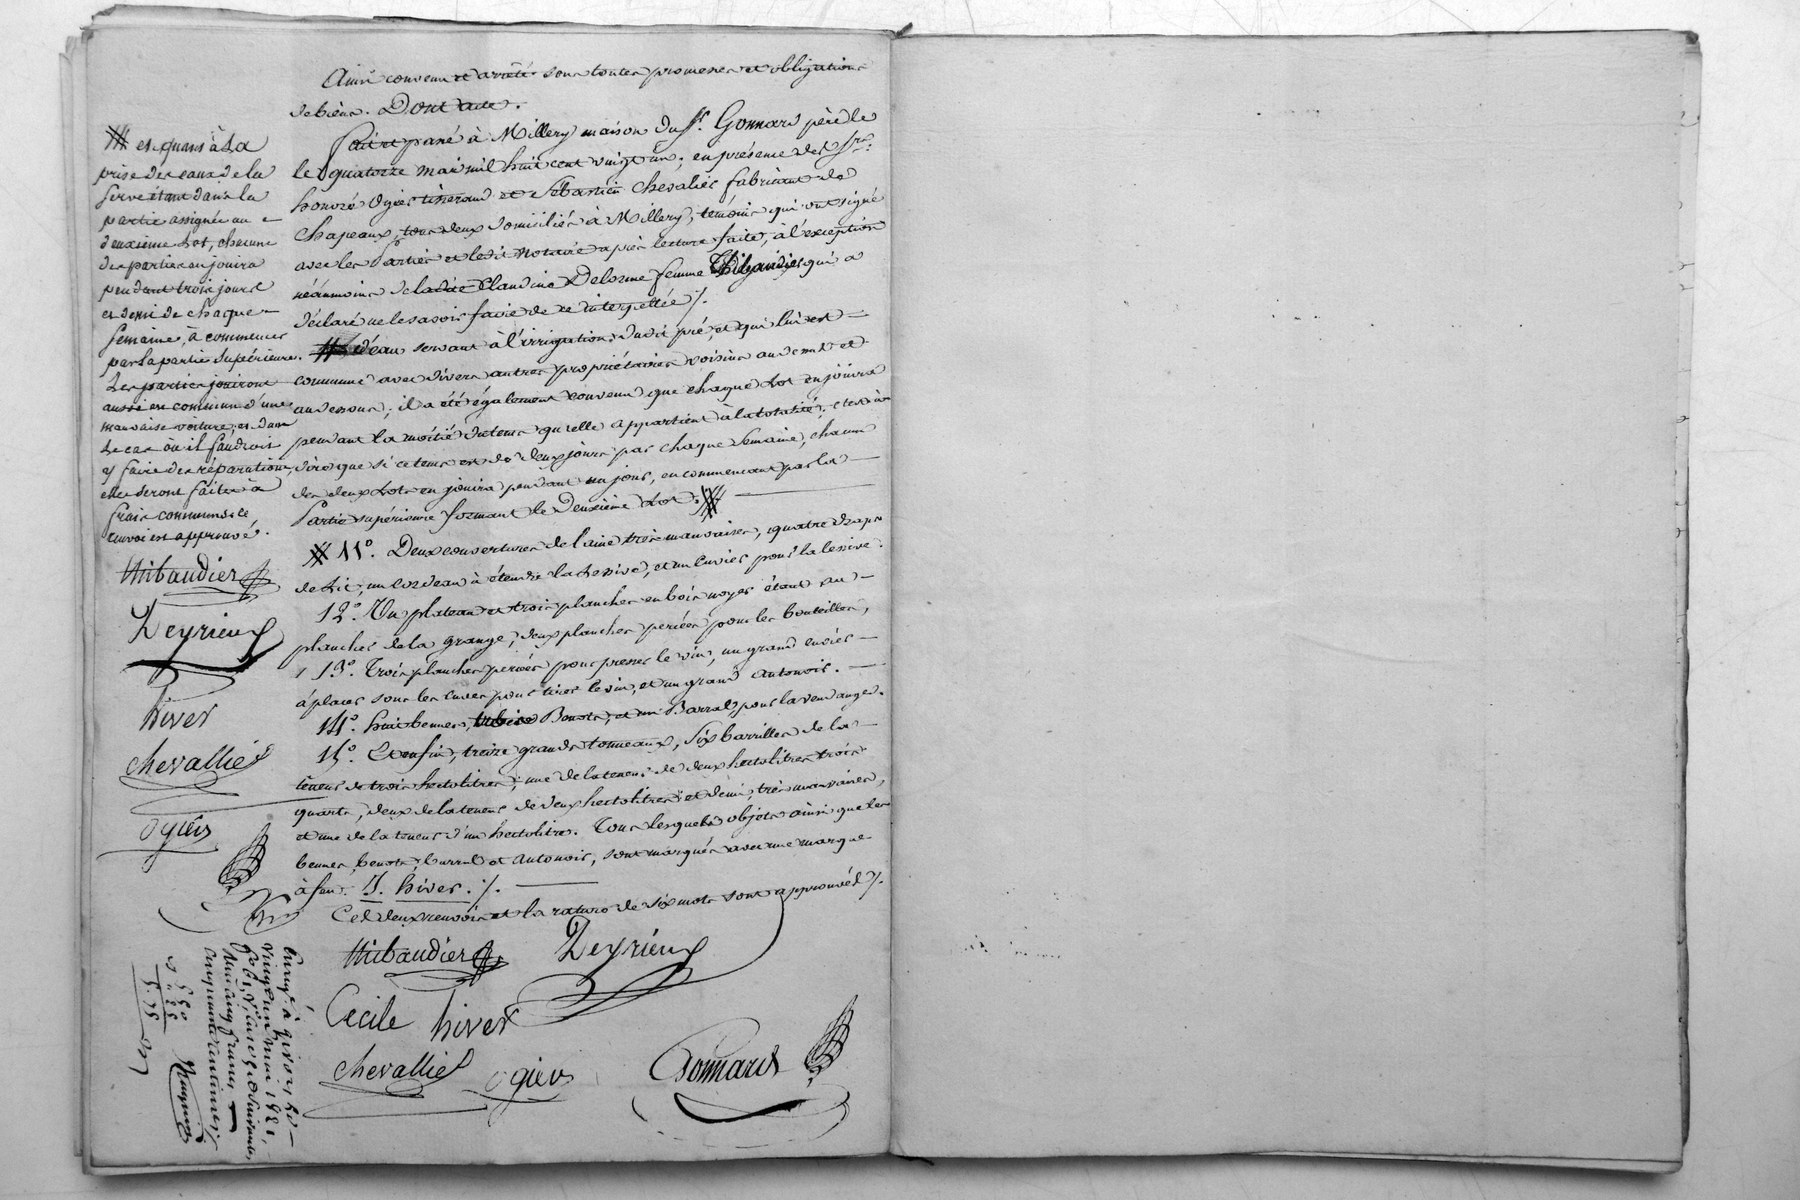 Ainsi convenu et arrêté sous toutes promesses et obligations
de biens. Dont acte.
Fait et passé à Millery maison du Sr. Gonnard père le
le quatorze mai mil huit cent vingt un; en présence des Srs.
honoré Ogier tisserand et Sébastien Chevalier fabricant de
chapeaux, tous deux domiciliés à Millery, témoins qui ont signé
avec les Parties et ledit Notaire après lecture faite, à l'exception
néanmoins de ladite Claudine Delorme femme Thibaudier qui a
déclaré ne le savoir faire de ce interpellée ./.
d'eau servant à l'irrigation dudit pré, et qui lui est
commune avec divers autres propriétaires voisins au dessus et
au dessous; il a été également convenu que chaque Lot en jouira
pendant la moitié du tems qu'elle appartient à la totalité; c'est à
dire que si ce tems est de deux jours par chaque Semaine, chacun
des deux Lots en jouira pendant un jour, en commencant par la
Partie supérieure formant le Deuxième Lot.
11°. Deux couvertures de laine très mauvaises, quatre draps
de Lit, un cordeau à étendre la Lessive, et un cuvier pour la lessive.
12°. Un plateau et trois planches en bois noyer étant au
plancher de la grange, deux planches percées pour les bouteilles,
13°. Trois planches percées pour presser le vin, un grand cuvier
à placer sous les cuves pour tirer le vin, et un grand Antonoir.
14°. huit bennes, Benots, et un Barral, pour la vendange.
15°. Et enfin, treize grands tonneaux, Six barrilles de la
teneur de trois hectolitres, une de la teneur de deux hectolitres trois
quarts, deux de la teneur de deux hectolitres et demi, très mauvaises,
et une de la teneur d'un hectolitre. Tous lesquels objets ainsi que les
bennes, benots, barral et Antonoir, sont marqués avec une marque
à feu. J. hiver. ./.
Ces deux renvois et la rature de six mots sont approuvés ./.
thibaudier Deyrieux
Cecile hiver
chevallier ogier Gonnard
et quant à La
prise des eaux de la
Serve étant dans la
partie assignée au
deuxième Lot, chacune
des parties en jouira
pendant trois jours
et demi de chaque
Semaine, à commencer
par la partie Supérieure.
Les parties jouiront
aussi en commun d'une
mauvaise voiture, et dans
le cas où il faudroit
y faire des réparations,
elles seront faites à
frais communs. Ce
renvoi est approuvé.
thibaudier
Deyrieux
hiver
chevallier
ogier
Enregé. à Givors le
vingt un mai 1821,
reçu cinq francs
cinquante centimes
5.50